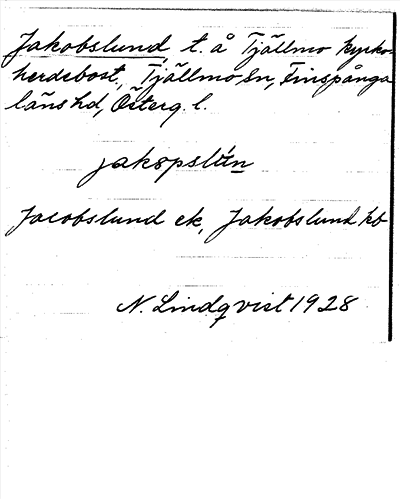 Jakobslund, t. å Tjällmo kyrko-
herdebost, Tjällmo sn, Finspånga
läns hd, Österg. l.
jakopslún
Jacobslund ek, Jakobslund kb
N. Lindqvist 1928